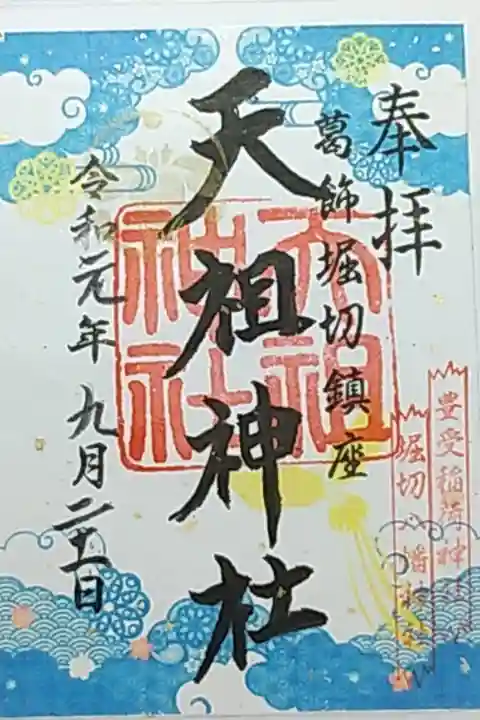 奉拝
葛飾堀切鎮座
天祖神社
天祖神社
令和元年九月二十一日
豊受稲荷神社
堀切八幡神社